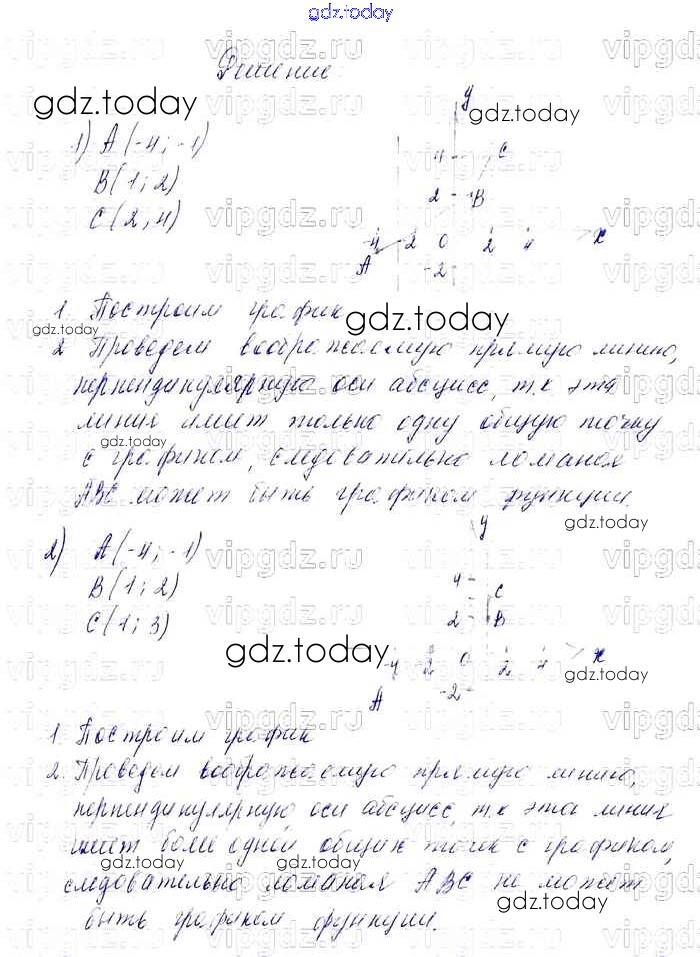 gdz.today
Решение:
gdz.today
gdz.today
1) A(-4; -1)
B(1; 2)
C(2; 4)
y
4 C
2 B
-4 -2 0 2 4 x
A
-2
1. Построим график
gdz.today
gdz.today
2 Проведем воображаемую прямую линию,
перпендикулярную оси абсцисс, т.к эта
линия имеет только одну общую точку
gdz.today
с графиком, следовательно ломаная
ABC может быть графиком функции.
gdz.today
2) A(-4; -1)
B(1; 2)
C(1; 3)
y
4 C
2 B
-4 -2 0 2 4 x
A
-2
gdz.today
gdz.today
1. Построим график
2. Проведем воображаемую прямую линию,
перпендикулярную оси абсцисс, т.к эта линия
имеет более одной общих точек с графиком,
gdz.today
gdz.today
следовательно ломаная ABC не может
gdz.today
быть графиком функции.